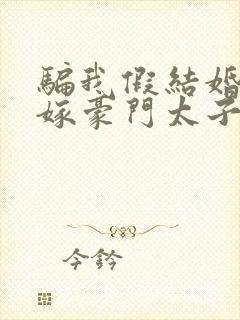 騙我假結婚
嫁豪門太子
今鈐